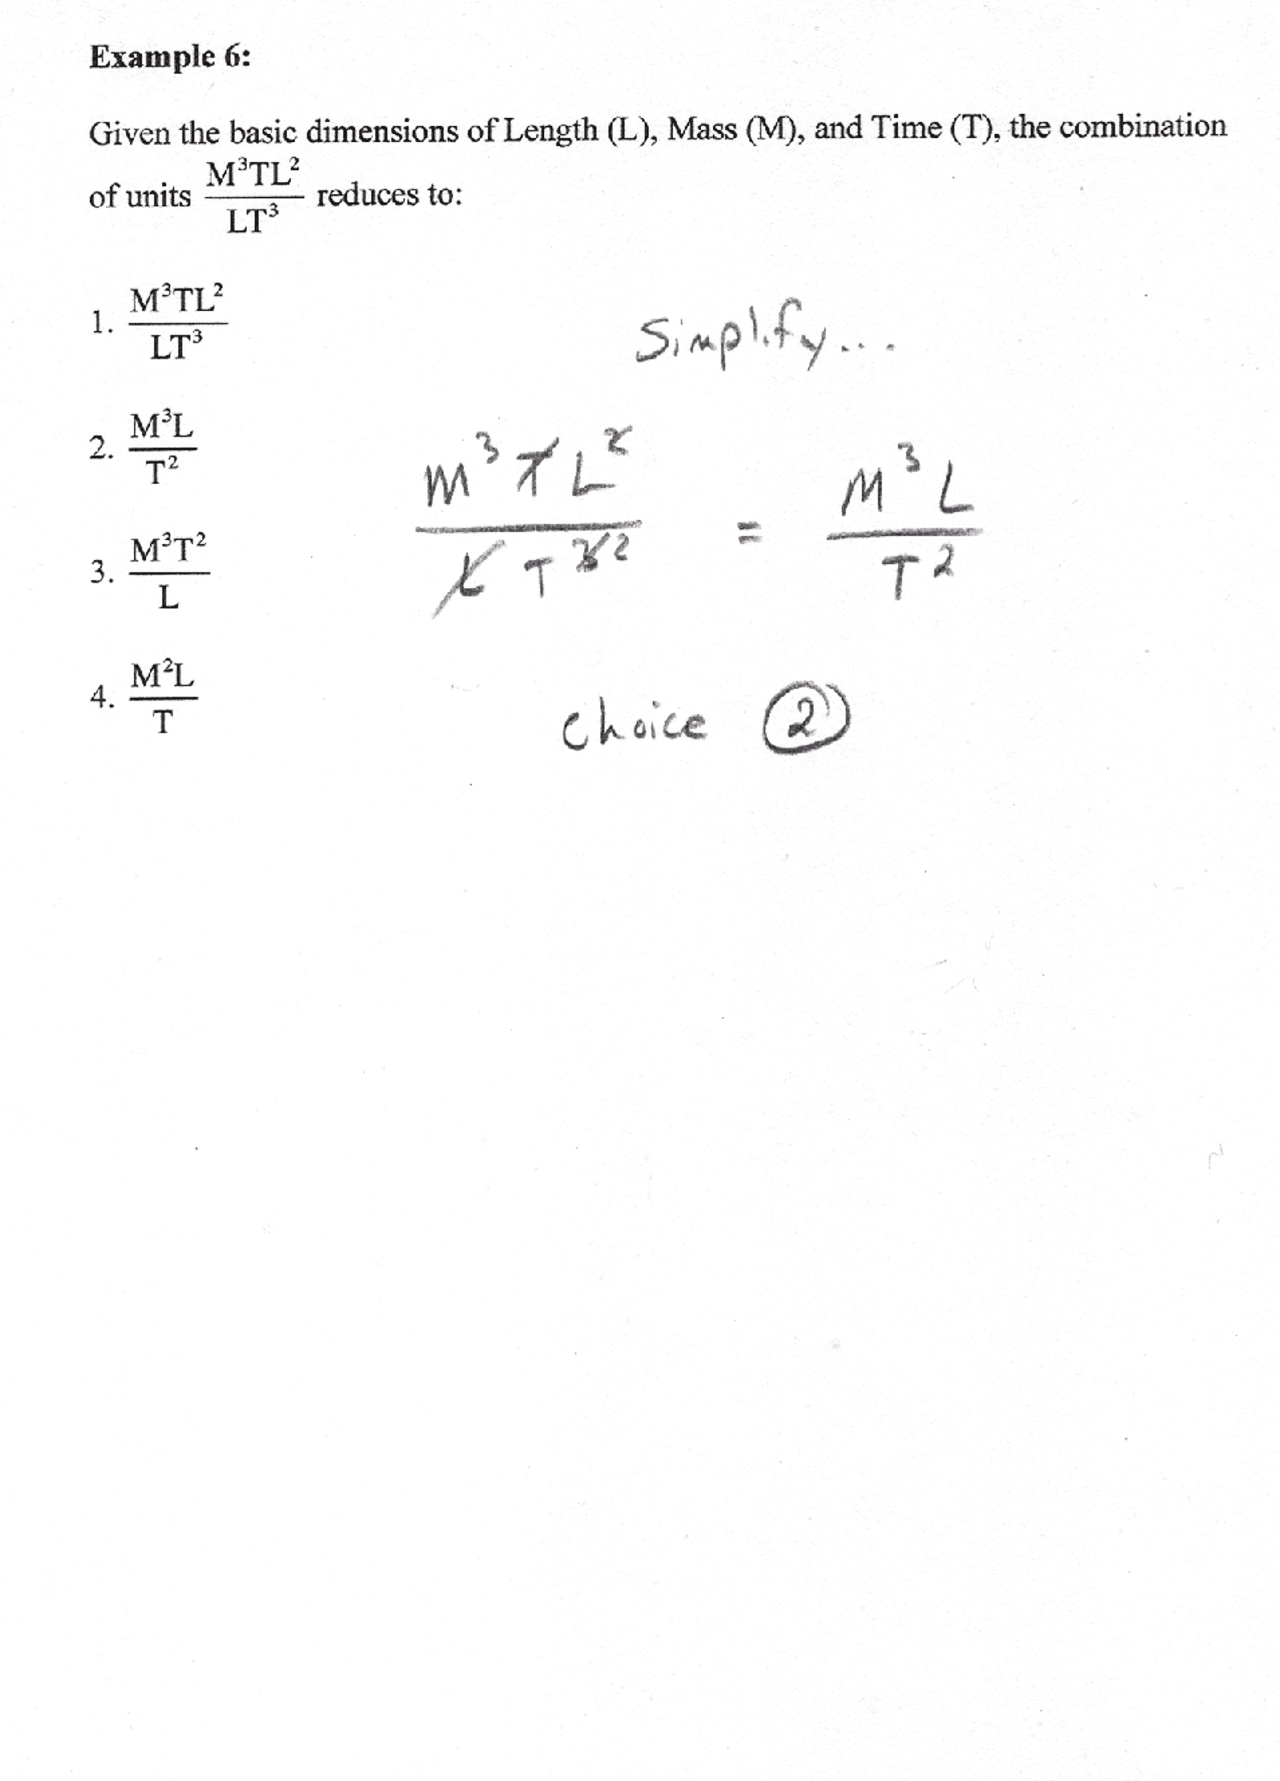 Example 6:
Given the basic dimensions of Length (L), Mass (M), and Time (T), the combination
of units M³TL²/LT³ reduces to:
1. M³TL²/LT³
Simplify...
2. M³L/T²
M³TL²/LT³² = M³L/T²
3. M³T²/L
4. M²L/T
choice ②